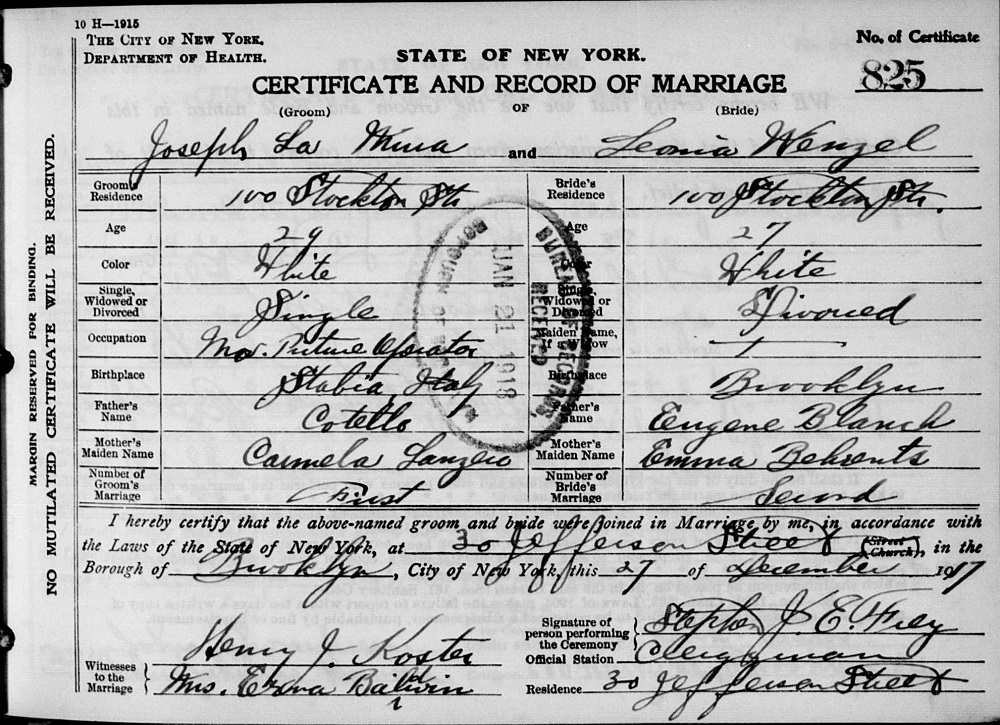 10 H—1915
THE CITY OF NEW YORK.
DEPARTMENT OF HEALTH.
STATE OF NEW YORK.
No. of Certificate
825
CERTIFICATE AND RECORD OF MARRIAGE
(Groom) OF (Bride)
Joseph La Mura and Leonia Wenzel
Groom's Residence 100 Stockton Str. Bride's Residence 100 Stockton Str.
Age 29 Age 27
Color White Color White
Single, Widowed or Divorced Single Single, Widowed or Divorced Divorced
Occupation Mov. Picture Operator Maiden Name, if a Widow —
Birthplace Stabia, Italy Birthplace Brooklyn
Father's Name Cotello Father's Name Eugene Blanch
Mother's Maiden Name Carmela Mother's Maiden Name Emma Behrents
Number of Groom's Marriage First Number of Bride's Marriage Second
I hereby certify that the above-named groom and bride were joined in Marriage by me, in accordance with
the Laws of the State of New York, at 30 Jefferson Street (Street Church), in the
Borough of Brooklyn, City of New York, this 27 of December 1917
Witnesses to the Marriage
Henry J. Koster
Mrs. Emma Baldwin
Signature of person performing the Ceremony Stephen J. E. Frey
Official Station Clergyman
Residence 30 Jefferson Street
MARGIN RESERVED FOR BINDING.
NO MUTILATED CERTIFICATE WILL BE RECEIVED.
BUREAU OF RECORDS
RECEIVED
JAN 21 1918
BOROUGH OF